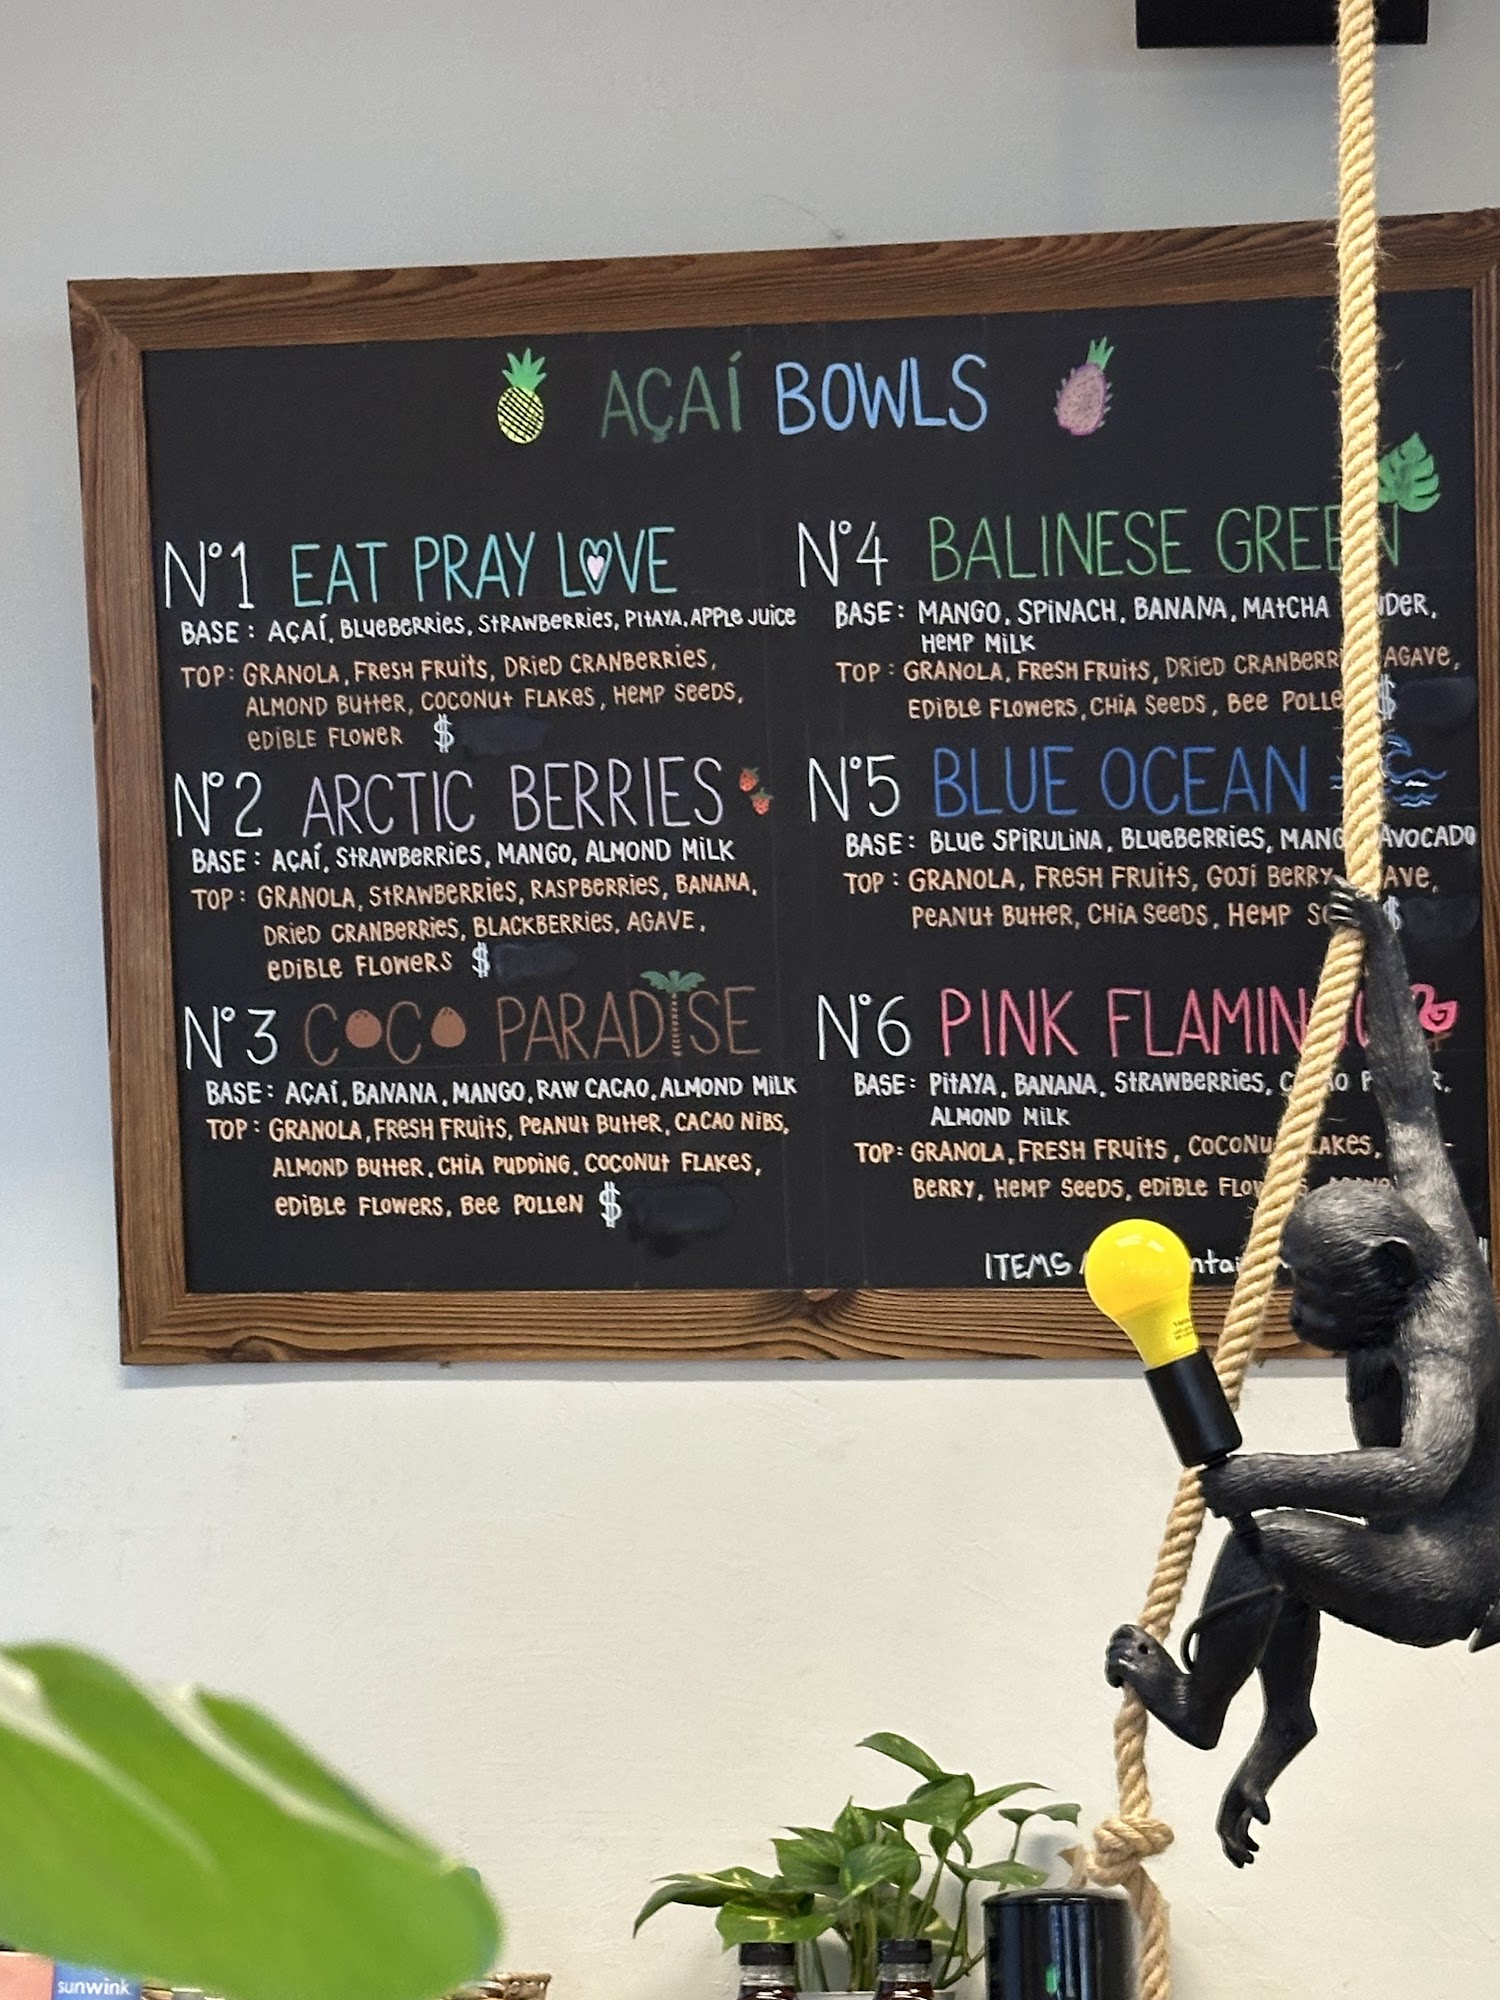 AÇAÍ BOWLS
N°1 EAT PRAY LOVE
BASE: AÇAÍ, BLUEBERRIES, STRAWBERRIES, PITAYA, APPLE JUICE
TOP: GRANOLA, FRESH FRUITS, DRIED CRANBERRIES,
ALMOND BUTTER, COCONUT FLAKES, HEMP SEEDS,
EDIBLE FLOWER $
N°2 ARCTIC BERRIES
BASE: AÇAÍ, STRAWBERRIES, MANGO, ALMOND MILK
TOP: GRANOLA, STRAWBERRIES, RASPBERRIES, BANANA,
DRIED CRANBERRIES, BLACKBERRIES, AGAVE,
EDIBLE FLOWERS $
N°3 COCO PARADISE
BASE: AÇAÍ, BANANA, MANGO, RAW CACAO, ALMOND MILK
TOP: GRANOLA, FRESH FRUITS, PEANUT BUTTER, CACAO NIBS,
ALMOND BUTTER, CHIA PUDDING, COCONUT FLAKES,
EDIBLE FLOWERS, BEE POLLEN $
N°4 BALINESE GREEN
BASE: MANGO, SPINACH, BANANA, MATCHA
HEMP MILK
TOP: GRANOLA, FRESH FRUITS, DRIED AGAVE,
EDIBLE FLOWERS, CHIA SEEDS, BEE $
N°5 BLUE OCEAN
BASE: BLUE SPIRULINA, BLUEBERRIES, MANGO AVOCADO
TOP: GRANOLA, FRESH FRUITS, GOJI BERRY,
PEANUT BUTTER, CHIA SEEDS, HEMP $
N°6 PINK FLAMINGO
BASE: PITAYA, BANANA, STRAWBERRIES,
ALMOND MILK
TOP: GRANOLA, FRESH FRUITS, COCONUT FLAKES,
BERRY, HEMP SEEDS, EDIBLE
ITEMS
sunwink